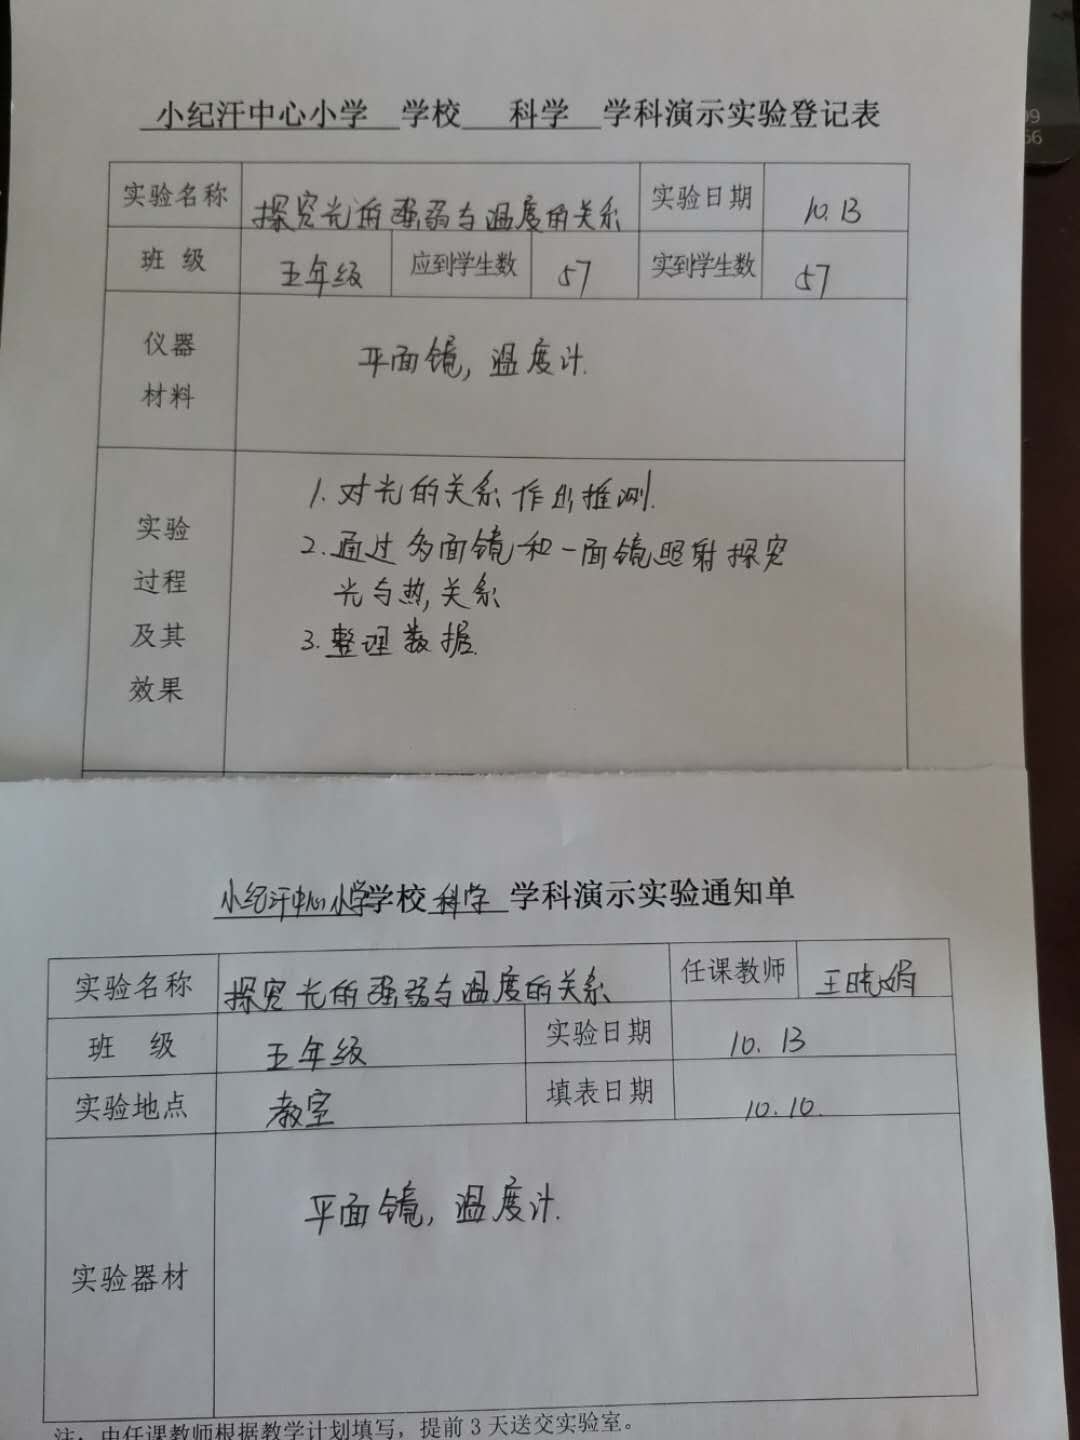 小纪汗中心小学 学校 科学 学科演示实验登记表
实验名称 探究光的强弱与温度的关系 实验日期 10.13
班 级 五年级 应到学生数 57 实到学生数 57
仪器
材料
平面镜, 温度计.
实验
过程
及其
效果
1. 对光的关系作出推测.
2. 通过多面镜和一面镜照射探究
光与热关系
3. 整理数据.
小纪汗中心小学学校 科学 学科演示实验通知单
实验名称 探究光的强弱与温度的关系 任课教师 王晓娟
班 级 五年级 实验日期 10.13
实验地点 教室 填表日期 10.10.
实验器材 平面镜, 温度计.
注：由任课教师根据教学计划填写，提前3天送交实验室。